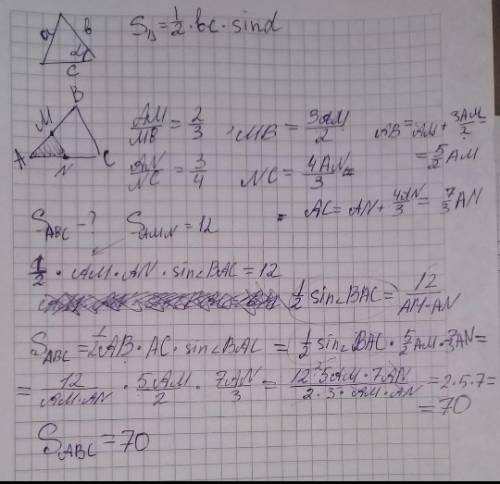 a b α c
S_Δ = 1/2 · bc · sinα
B M A N C
AM/MB = 2/3 , MB = 3AM/2 AB = AM + 3AM/2 =
= 5/2 AM
AN/NC = 3/4 NC = 4AN/3 =
= AC = AN + 4AN/3 = 7/3 AN
S_ABC - ? S_AMN = 12
1/2 · AM · AN · sin∠BAC = 12
1/2 sin∠BAC = 12/AM·AN
S_ABC = 1/2 AB · AC · sin∠BAC = 1/2 sin∠BAC · 5/2 AM · 7/3 AN =
= 12/AM·AN · 5AM/2 · 7AN/3 = 12·5AM·7AN/2·3·AM·AN = 2·5·7 =
= 70
S_ABC = 70